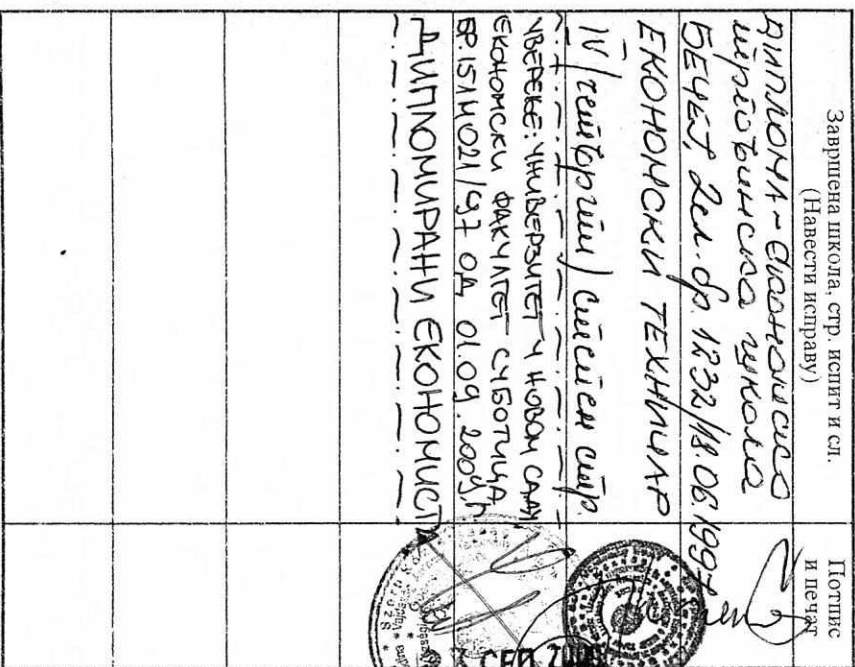 Завршена школа, стр. испит и сл.
(Навести исправу)
Потпис
и печат
ДИПЛОМА - Економско
трговинска школа
БЕЧЕЈ, Дел. бр. 1232/18.06.1997
ЕКОНОМСКИ ТЕХНИЧАР
IV/четврти/ степен стр.
УВЕРЕЊЕ: УНИВЕРЗИТЕТ У НОВОМ САДУ
ЕКОНОМСКИ ФАКУЛТЕТ СУБОТИЦА,
БР. 151М021/97 ОД 01.09.2009.г.
ДИПЛОМИРАНИ ЕКОНОМИСТА
СЕП